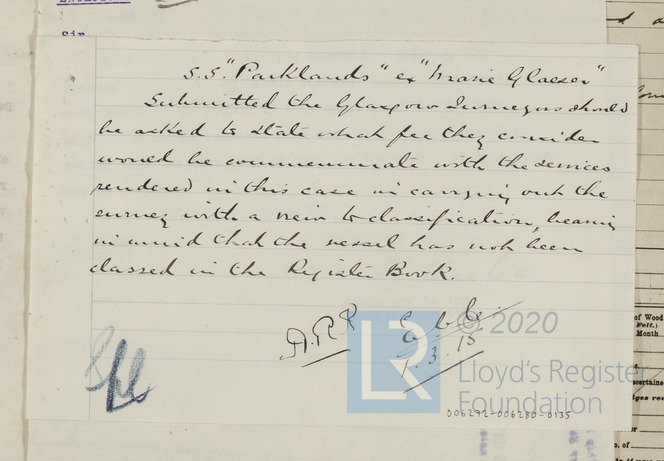 Sir
S.S. "Parklands" ex "Marie Glaeser"
Submitted the Glasgow Surveyors should
be asked to state what fee they consider
would be commensurate with the services
rendered in this case in carrying out the
survey with a view to classification, bearing
in mind that the vessel has not been
classed in the Register Book.
1.3.15
LR
© 2020
Lloyd's Register
Foundation
006272-006280-0135
of Wood
Felt.)
Month
ascertaine